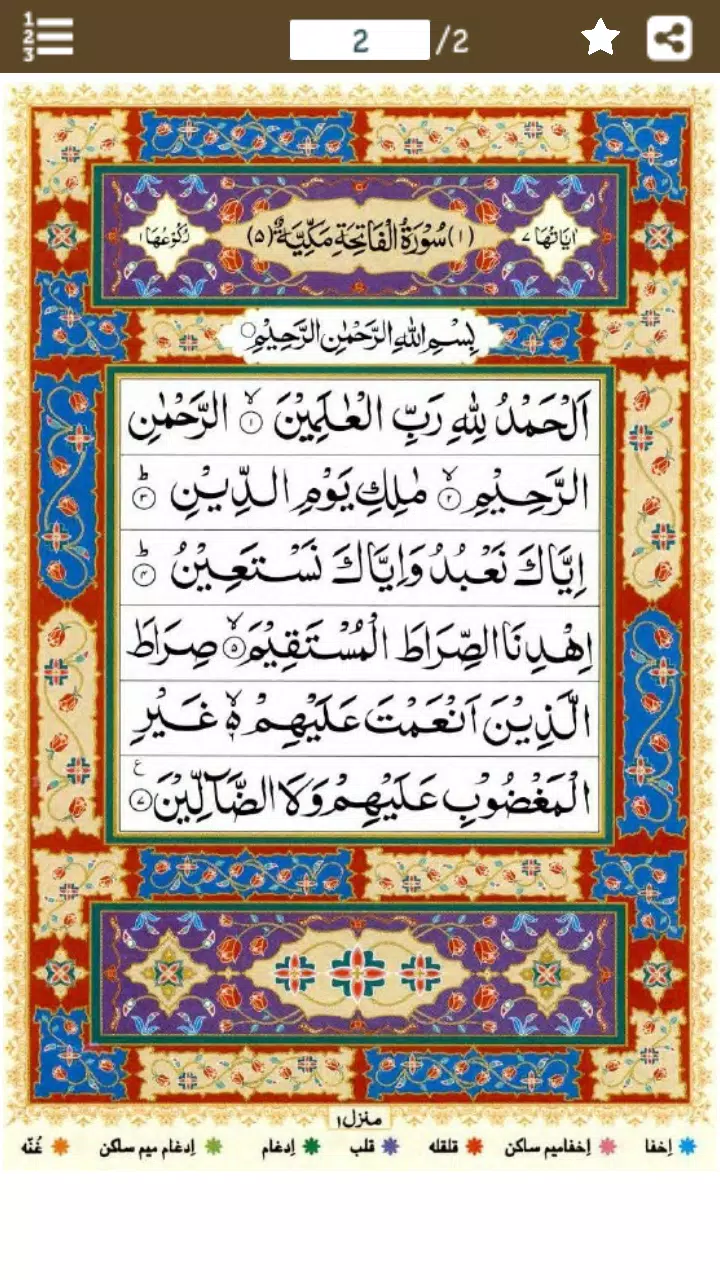 1
2
3
2 /2
اٰيَاتُهَا ٧ (١) سُوْرَةُ الْفَاتِحَةِ مَكِّيَّةٌ (٥) رُكُوْعُهَا ١
بِسْمِ اللّٰهِ الرَّحْمٰنِ الرَّحِيْمِ
اَلْحَمْدُ لِلّٰهِ رَبِّ الْعٰلَمِيْنَ ۙ﴿١﴾ الرَّحْمٰنِ
الرَّحِيْمِ ۙ﴿٢﴾ مٰلِكِ يَوْمِ الدِّيْنِ ؕ﴿٣﴾
اِيَّاكَ نَعْبُدُ وَاِيَّاكَ نَسْتَعِيْنُ ؕ﴿٤﴾
اِهْدِنَا الصِّرَاطَ الْمُسْتَقِيْمَ ۙ﴿٥﴾ صِرَاطَ
الَّذِيْنَ اَنْعَمْتَ عَلَيْهِمْ ۙ۵ غَيْرِ
الْمَغْضُوْبِ عَلَيْهِمْ وَلَا الضَّآلِّيْنَ ﴿٧﴾ ع
منزل ١
اِخفا اِخفامیم ساکن قلقله قلب اِدغام اِدغام میم ساکن غُنّه